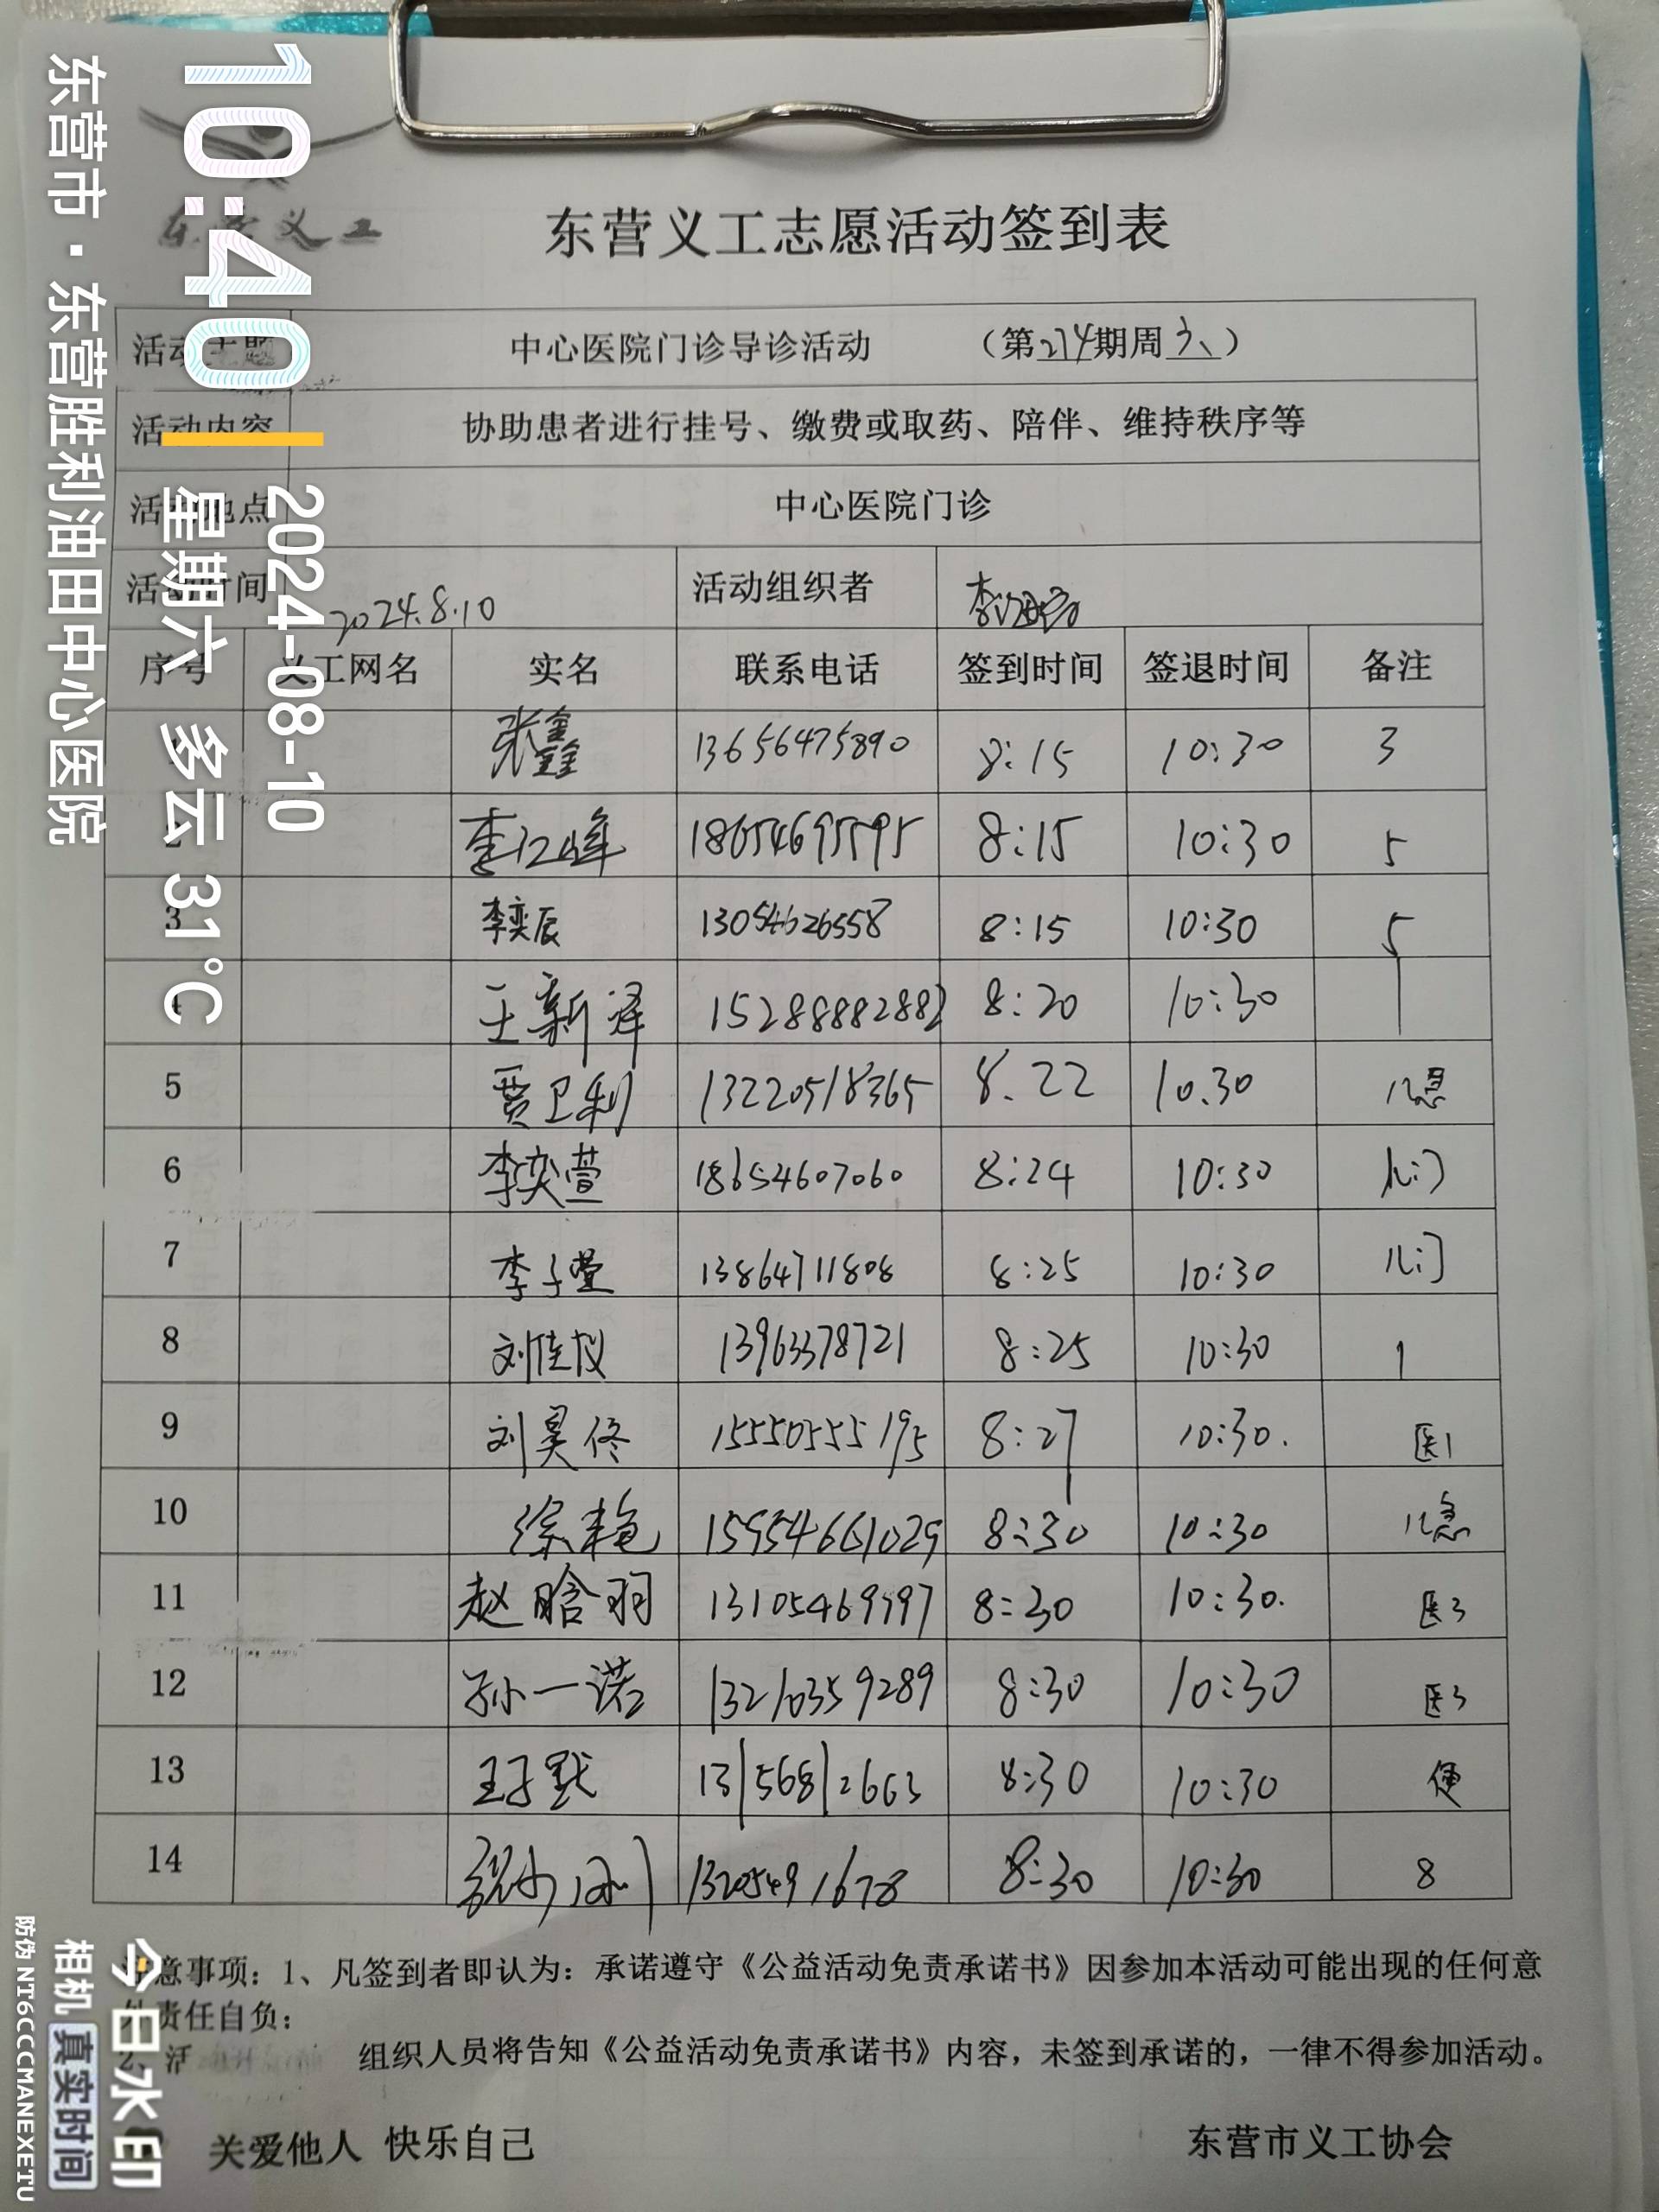 东营义工
东营义工志愿活动签到表
活动主题 中心医院门诊导诊活动 （第274期周六）
活动内容 协助患者进行挂号、缴费或取药、陪伴、维持秩序等
活动地点 中心医院门诊
活动时间 2024.8.10 活动组织者
序号 义工网名 实名 联系电话 签到时间 签退时间 备注
张鑫鑫 13656475890 8:15 10:30 3
2 李江峰 18654695595 8:15 10:30 5
3 李奕辰 13054626558 8:15 10:30 5
4 王新泽 15288882882 8:20 10:30 1
5 贾卫利 13220518365 8.22 10.30 儿急
6 李奕萱 18654607060 8:24 10:30 儿门
7 李子萱 13864711808 8:25 10:30 儿门
8 刘佳仪 13963378721 8:25 10:30 1
9 刘昊佟 15550555195 8:27 10:30. 医1
10 徐艳 15954661029 8:30 10:30 儿急
11 赵晗羽 13105469997 8:30 10:30. 医3
12 孙一诺 13210359289 8:30 10:30 医3
13 王子默 13156812663 8:30 10:30 便
14 13205491678 8:30 10:30 8
注意事项：1、凡签到者即认为：承诺遵守《公益活动免责承诺书》因参加本活动可能出现的任何意
外责任自负；
2、活 组织人员将告知《公益活动免责承诺书》内容，未签到承诺的，一律不得参加活动。
关爱他人 快乐自己 东营市义工协会
10:40
2024-08-10
星期六 多云 31℃
东营市·东营胜利油田中心医院
今日水印
相机 真实时间
防伪 NT6CCCMANEXETU